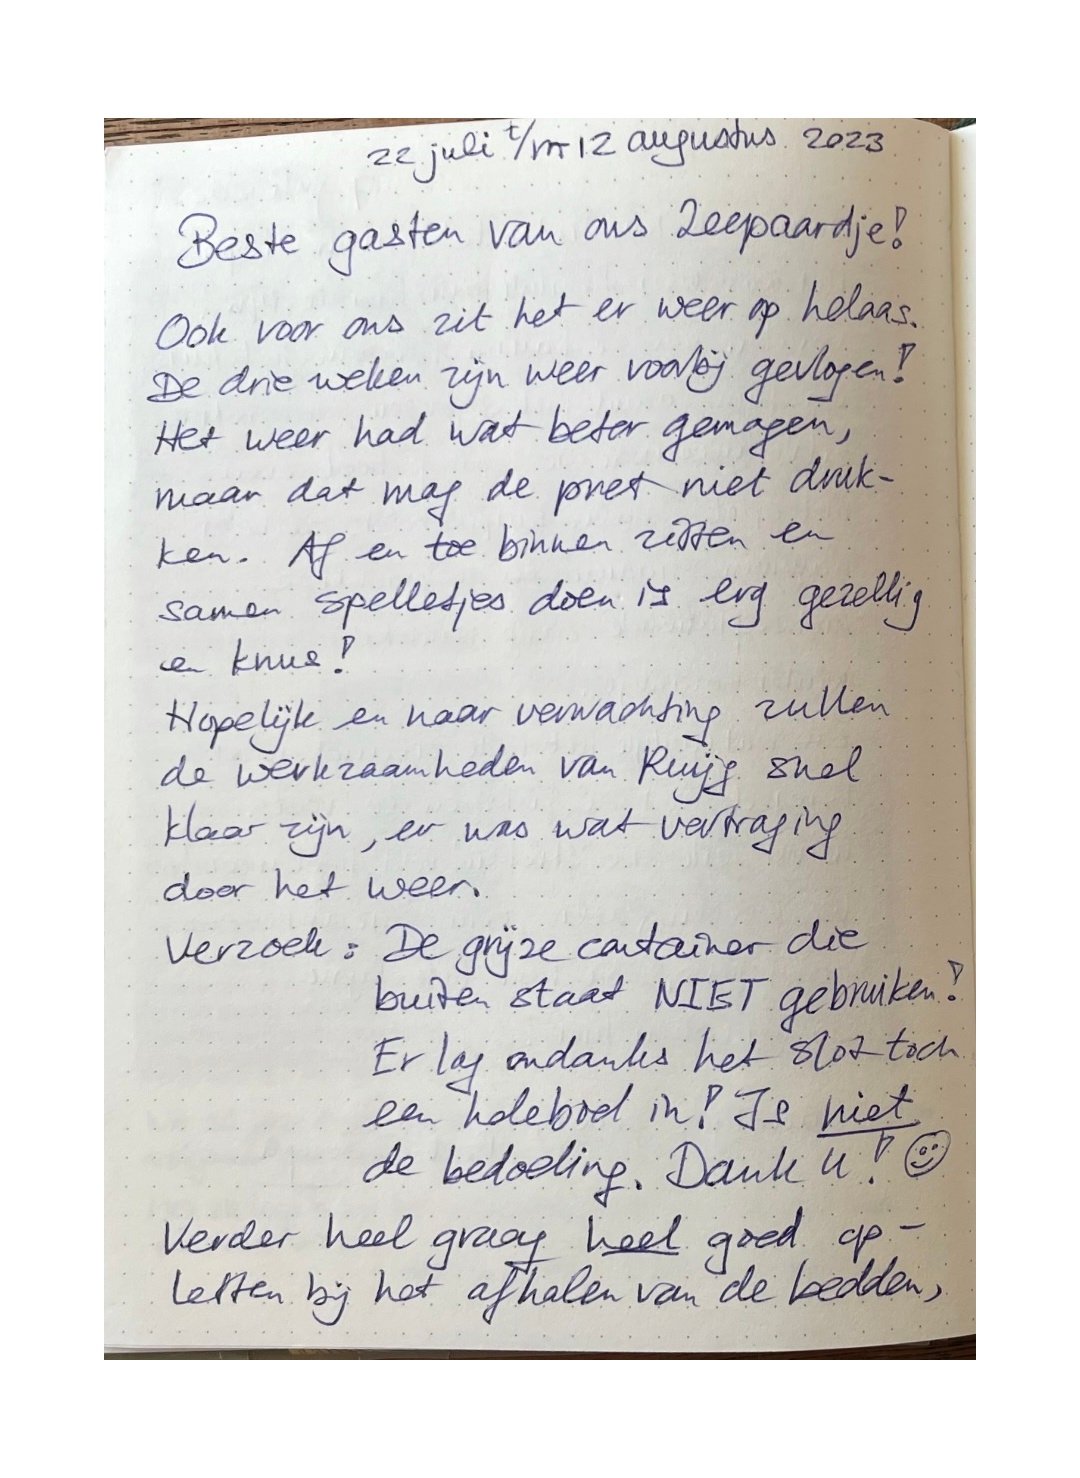 22 juli t/m 12 augustus 2023
Beste gasten van ons Zeepaardje!
Ook voor ons zit het er weer op helaas.
De drie weken zijn weer voorbij gevlogen!
Het weer had wat beter gemogen,
maar dat mag de pret niet druk-
ken. Af en toe binnen zitten en
samen spelletjes doen is erg gezellig
en knus!
Hopelijk en naar verwachting zullen
de werkzaamheden van Ruijg snel
klaar zijn, er was wat vertraging
door het weer.
Verzoek: De grijze container die
buiten staat NIET gebruiken!
Er lag ondanks het slot toch
een heleboel in! Is niet
de bedoeling. Dank u! ☺
Verder heel graag heel goed op-
letten bij het afhalen van de bedden,